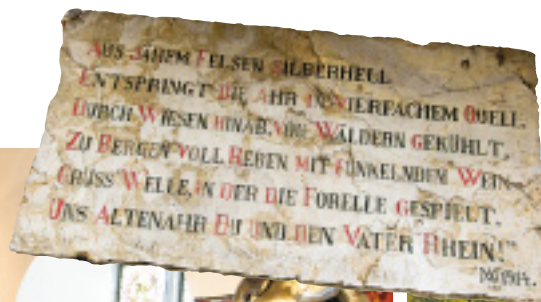 AUS JÄHEM FELSEN SILBERHELL
ENTSPRINGT DIE AHR IN VIERFACHEM QUELL.
DURCH WIESEN HINAB, VON WÄLDERN GEKÜHLT,
ZU BERGEN VOLL REBEN MIT FUNKELNDEM WEIN
GRÜSS' WELLE, IN DER DIE FORELLE GESPIELT,
UNS ALTENAHR DU UND DEN VATER RHEIN!"
1914.